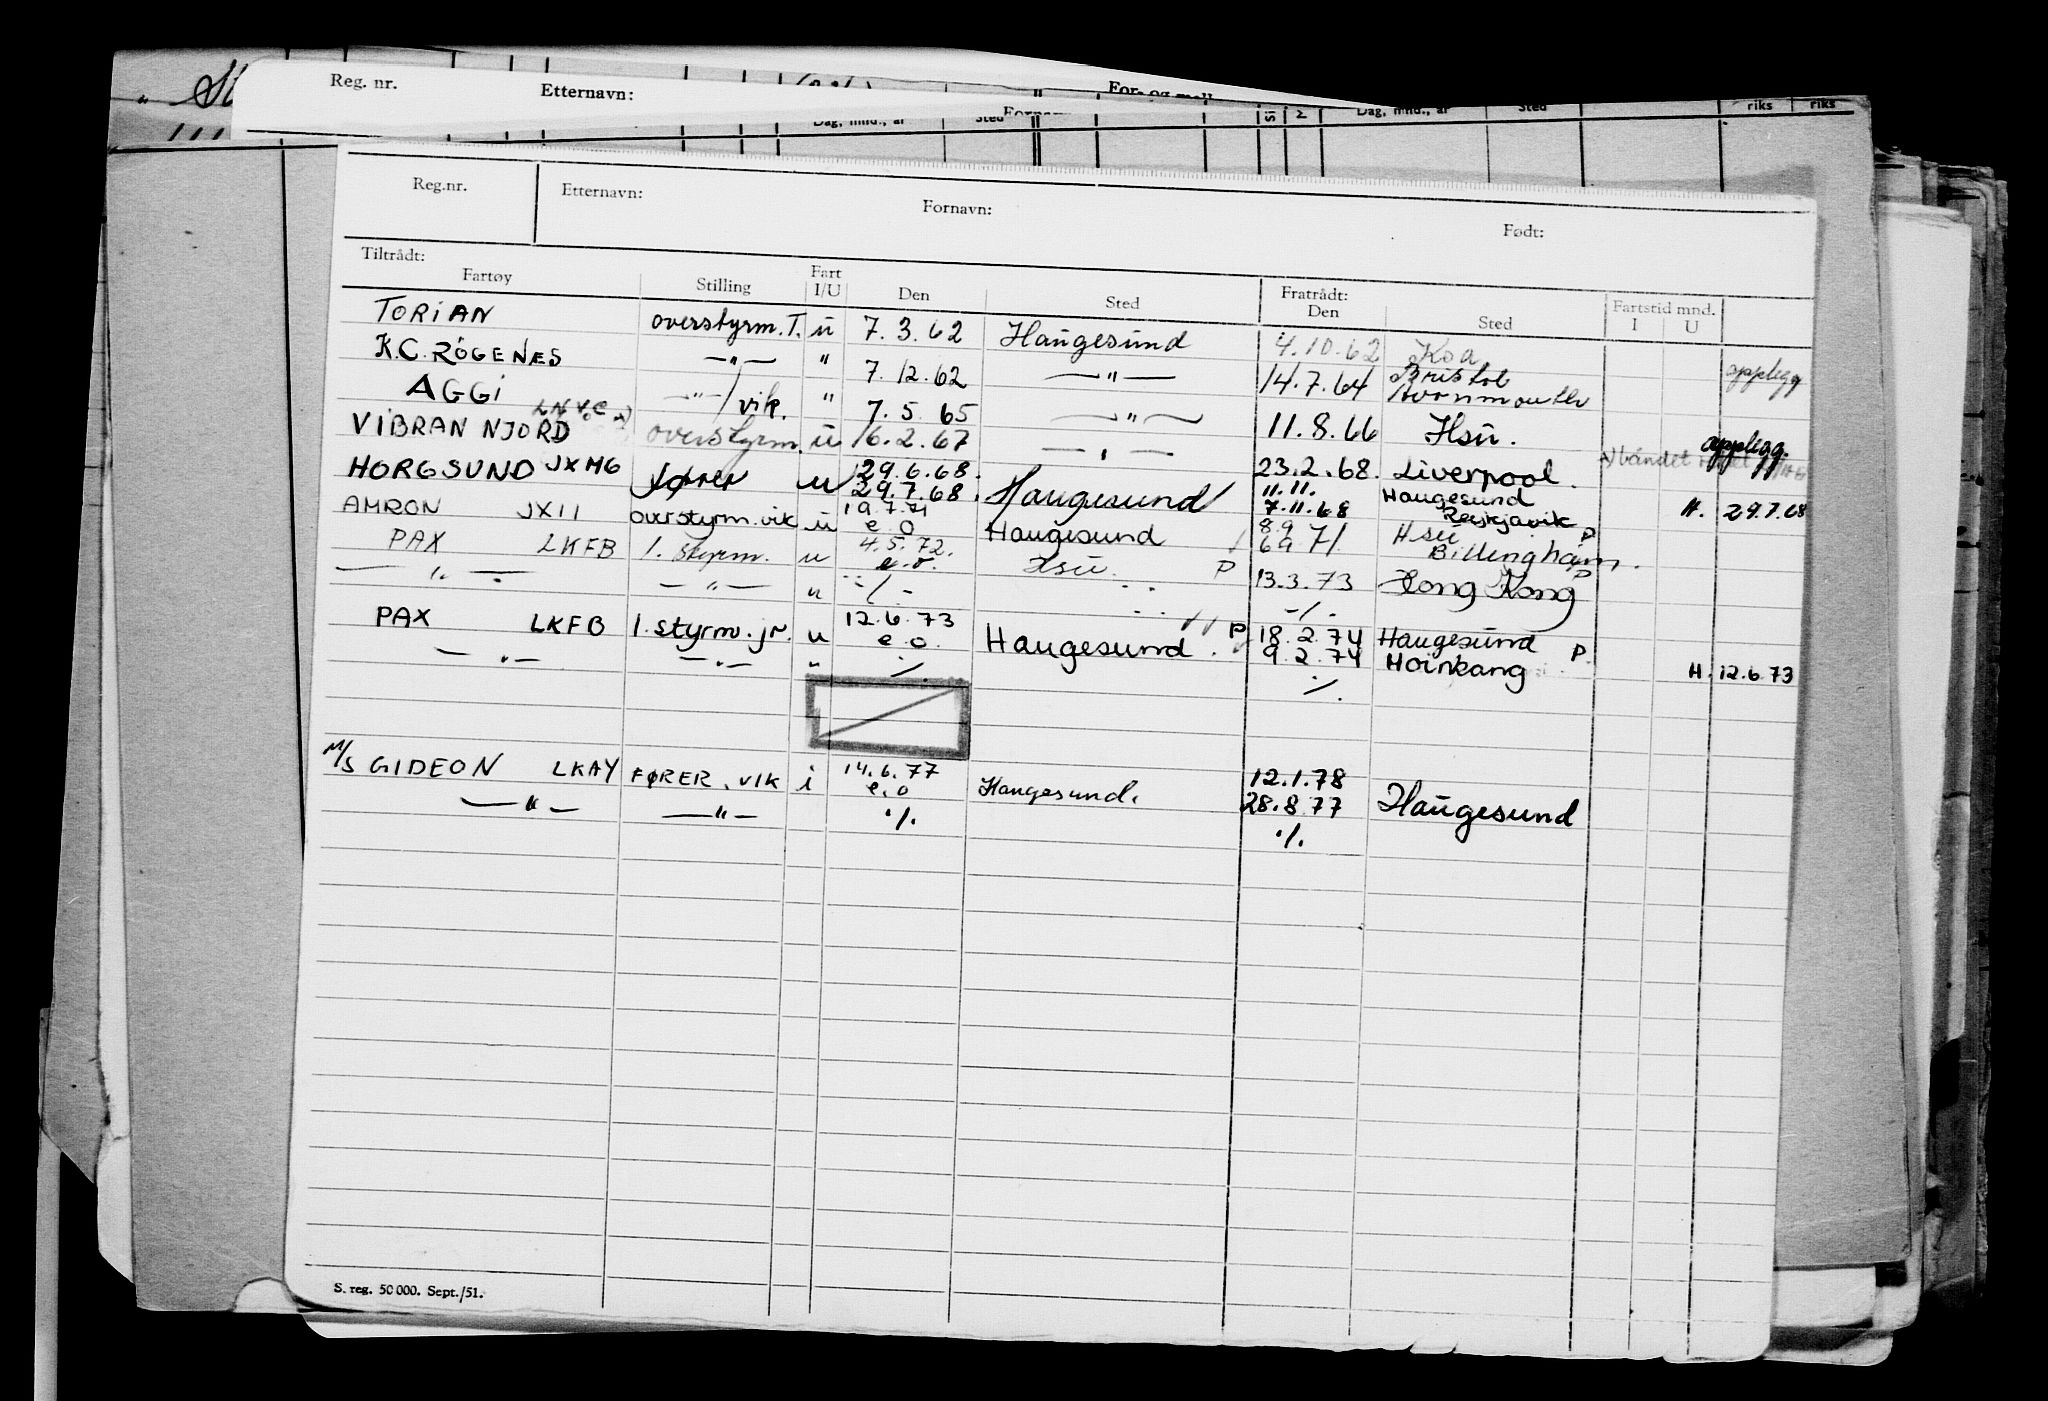 Reg. nr. Etternavn: For- og mell
Dag, mnd., år Sted Dag, mnd., år Sted riks riks
Reg.nr. Etternavn: Fornavn: Født:
Tiltrådt: Fratrådt: Fartstid mnd.
Fartøy Stilling Fart I/U Den Sted Den Sted I U
TORIAN overstyrm. T. u 7. 3. 62 Haugesund 4.10.62 Koa opplegg
K.C. RÖGENES —"— " 7. 12. 62 —"— 14.7.64 Bristol Avonmouth
AGGI —"—/vik. " 7. 5. 65 —"— 11.8.66 Hsu. opplegg.
VIBRAN NJORD overstyrm. u 16.2.67 —"— 23.2.68. Liverpool.
HORGSUND JXMG fører u 29.6.68. 29.7.68. Haugesund 11.11. 7.11.68 Haugesund Reykjavik H. 29.7.68
AMRON JXII overstyrm. vik u 19.7.71 e.o Haugesund 8.9 6 9 71 Hsu P Billingham.
PAX LKFB 1. styrm. u 4.5.72. e.o. Hsu. P 13.3.73 Hong Kong P
—"— —"— u -/- -/-
PAX LKFB 1. styrm. jr. u 12.6.73 e.o. Haugesund. P 18.2.74 9.2.74 Haugesund Hoinkang P H. 12.6.73
—"— —"— " ./. ./.
M/S GIDEON LKAY FØRER. VIK i 14.6.77 e.o Haugesund. 12.1.78 28.8.77 Haugesund
—"— —"— ./. ./.
S. reg. 50 000. Sept./51.